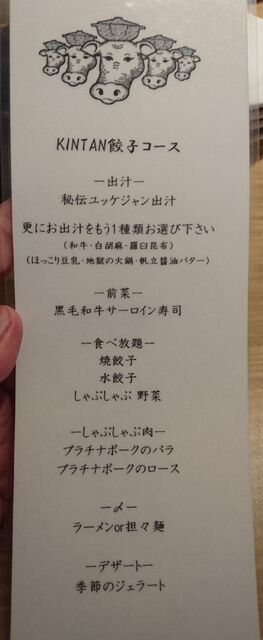 KINTAN餃子コース
ー出汁ー
秘伝ユッケジャン出汁
更にお出汁をもう1種類お選び下さい
(和牛・白胡麻・羅臼昆布)
(ほっこり豆乳・地獄の火鍋・帆立醤油バター)
ー前菜ー
黒毛和牛サーロイン寿司
ー食べ放題ー
焼餃子
水餃子
しゃぶしゃぶ 野菜
ーしゃぶしゃぶ肉ー
プラチナポークのバラ
プラチナポークのロース
ー〆ー
ラーメンor担々麺
ーデザートー
季節のジェラート